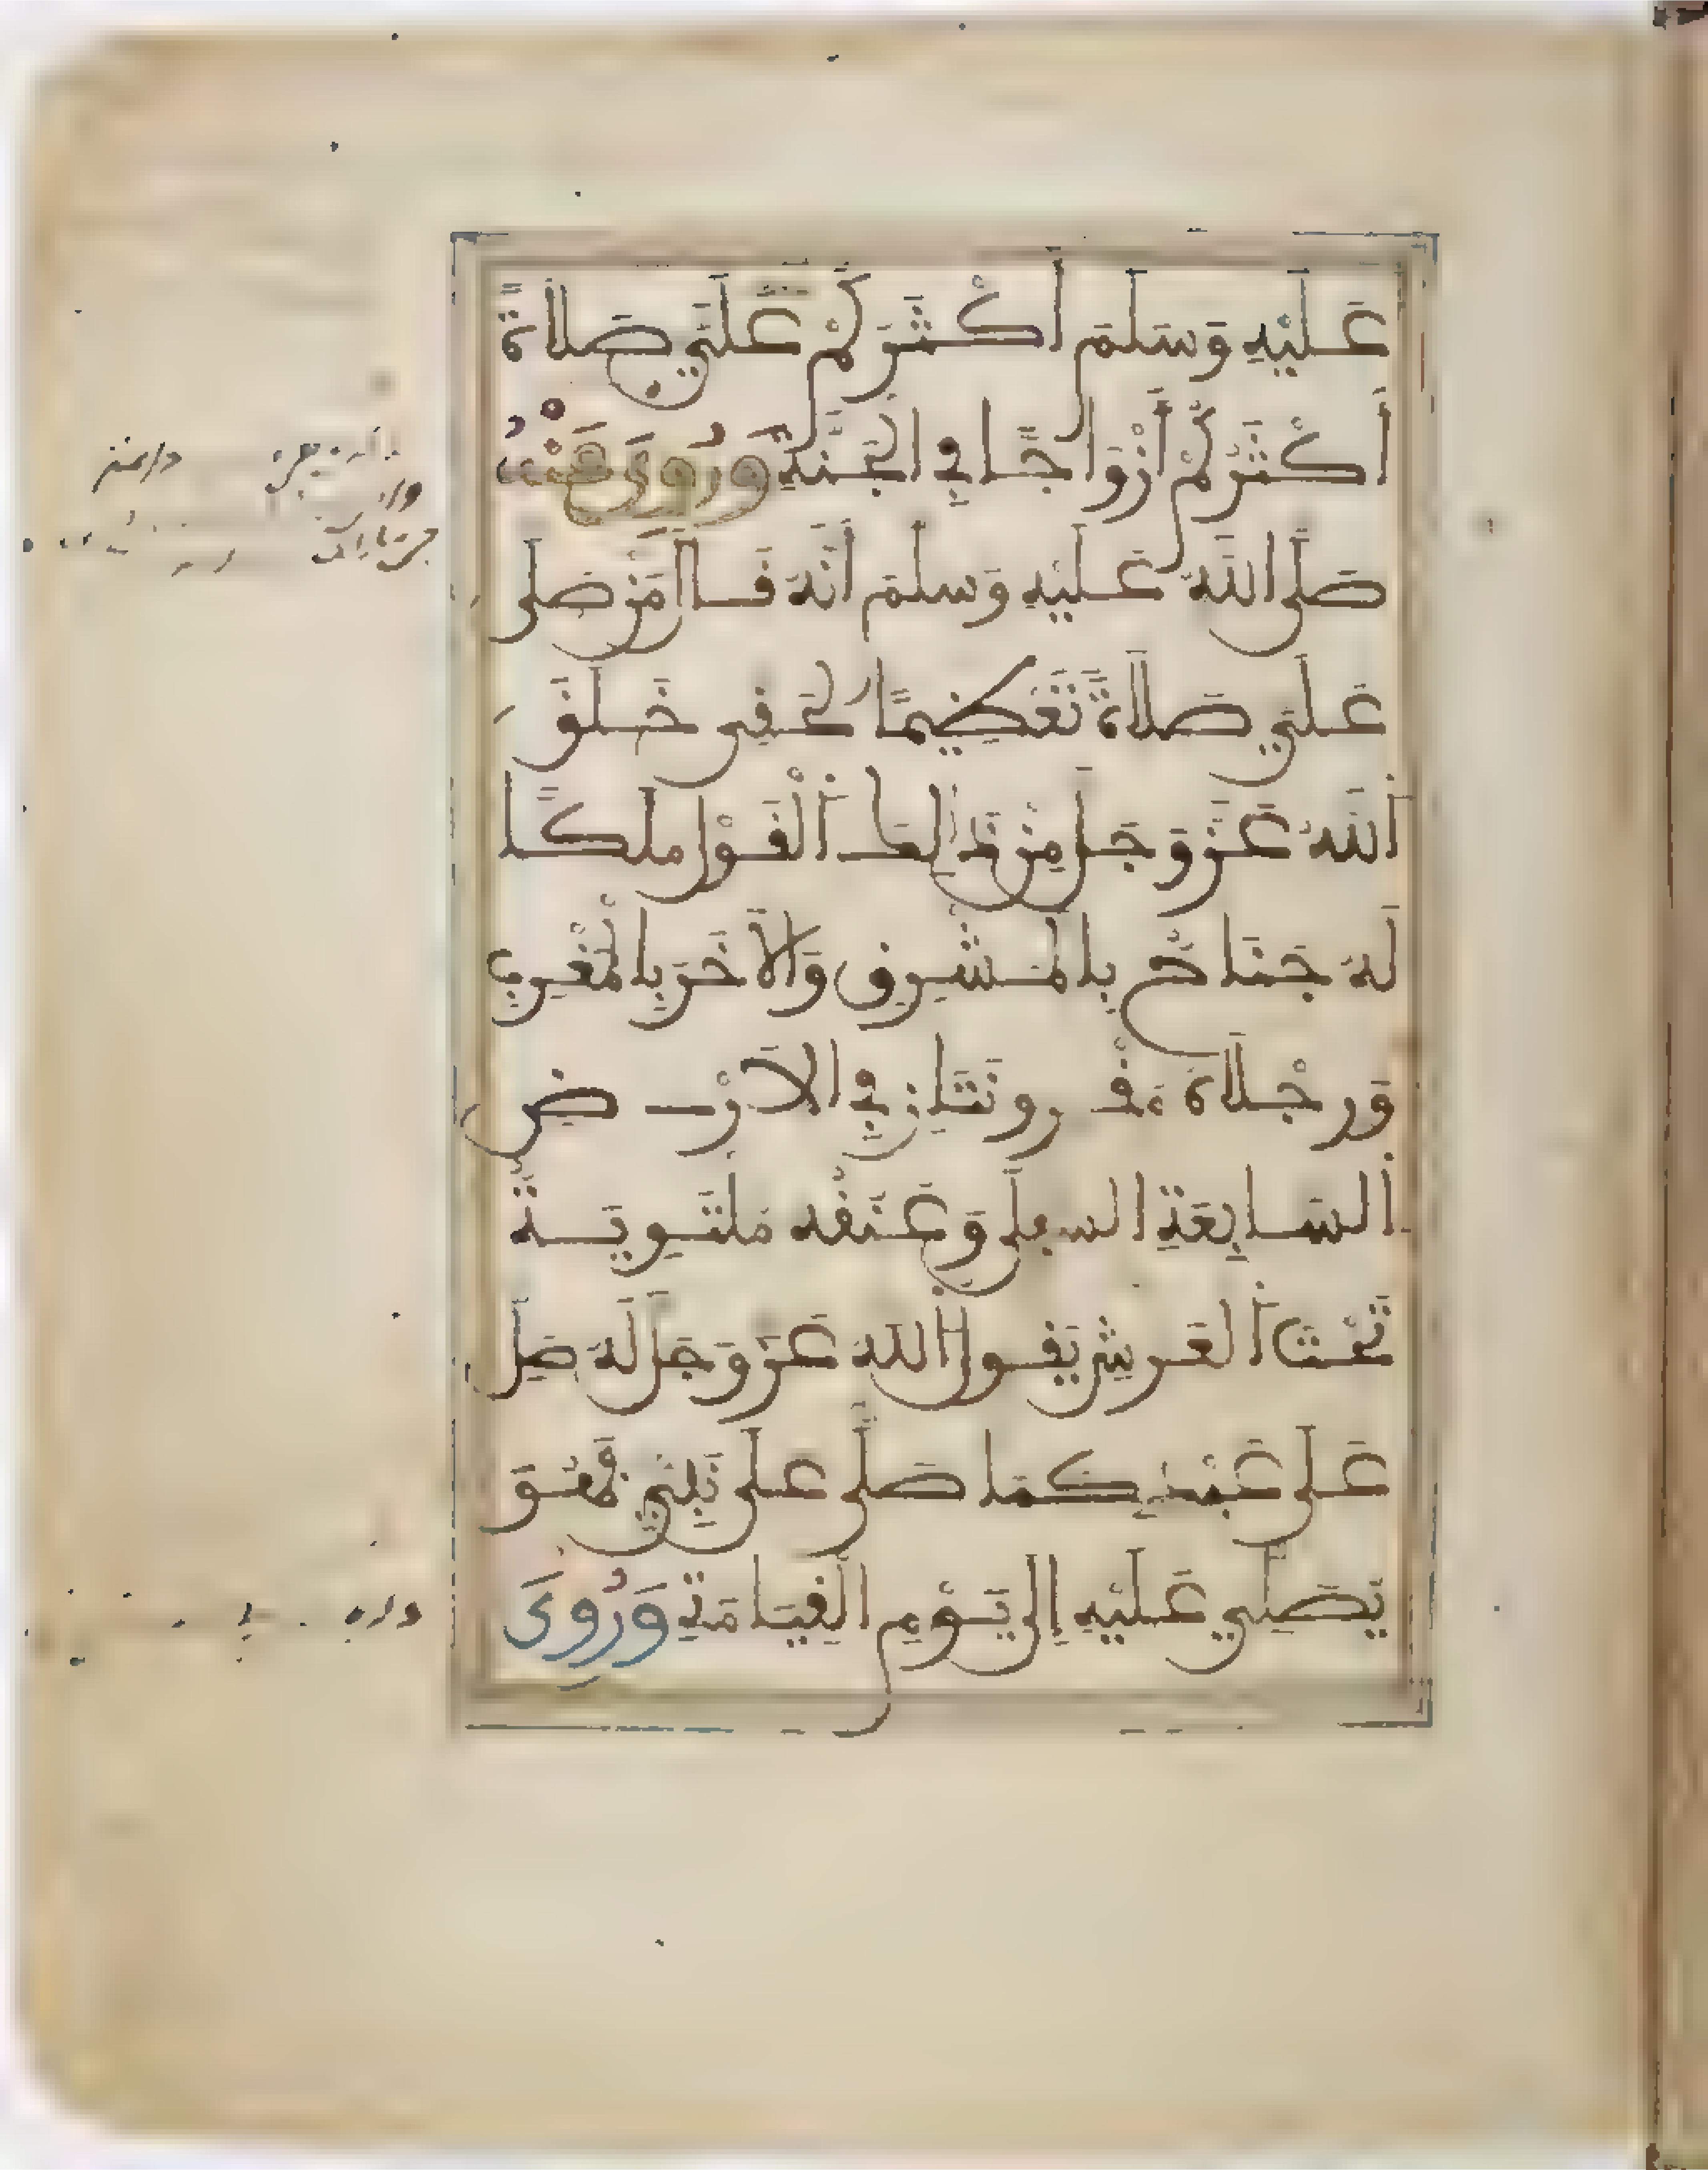 عَلَيْهِ وَسَلَّمَ أَكْثَرَكُمْ عَلَيَّ صَلَاةً
أَكْثَرُكُمْ أَزْوَاجًا فِي الْجَنَّةِ وَرُوِيَ عَنْهُ
صَلَّى اللَّهُ عَلَيْهِ وَسَلَّمَ أَنَّهُ قَالَ مَنْ صَلَّى
عَلَيَّ صَلَاةً تَعْظِيمًا لِحَقِّي خَلَقَ
اللَّهُ عَزَّ وَجَلَّ مِنْ ذَلِكَ الْقَوْلِ مَلَكًا
لَهُ جَنَاحٌ بِالْمَشْرِقِ وَالْآخَرُ بِالْمَغْرِبِ
وَرِجْلَاهُ مَقْرُونَتَانِ فِي الْأَرْضِ
السَّابِعَةِ السُّفْلَى وَعُنُقُهُ مُلْتَوِيَةٌ
تَحْتَ الْعَرْشِ يَقُولُ اللَّهُ عَزَّ وَجَلَّ لَهُ صَلِّ
عَلَى عَبْدِي كَمَا صَلَّى عَلَى نَبِيِّي فَهُوَ
يُصَلِّي عَلَيْهِ إِلَى يَوْمِ الْقِيَامَةِ وَرُوِيَ